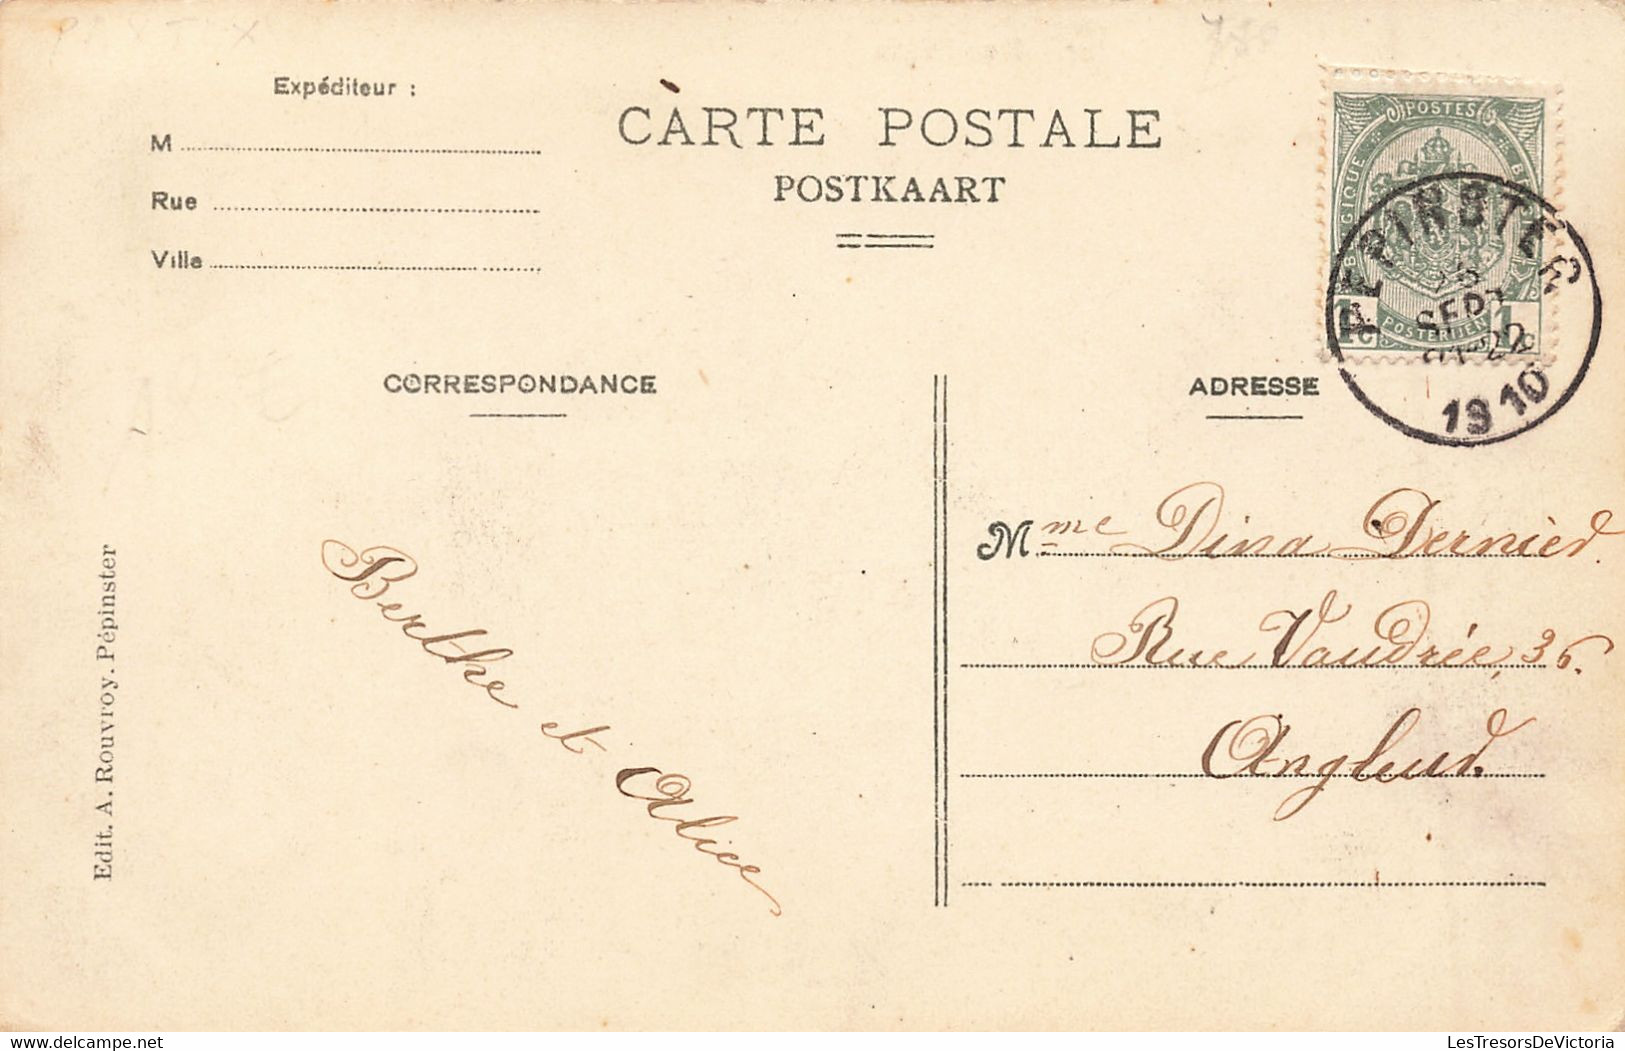 Expéditeur :
M
Rue
Ville
CARTE POSTALE
POSTKAART
CORRESPONDANCE
ADRESSE
POSTES
BELGIQUE
POSTERIJEN
1c 1c
PEPINSTER
SEPT
1910
Mme Dina Dernièd
Rue Vaudrée, 36.
Angleur.
Berthe et Alice
Edit. A. Rouvroy. Pépinster
delcampe.net
LesTresorsDeVictoria